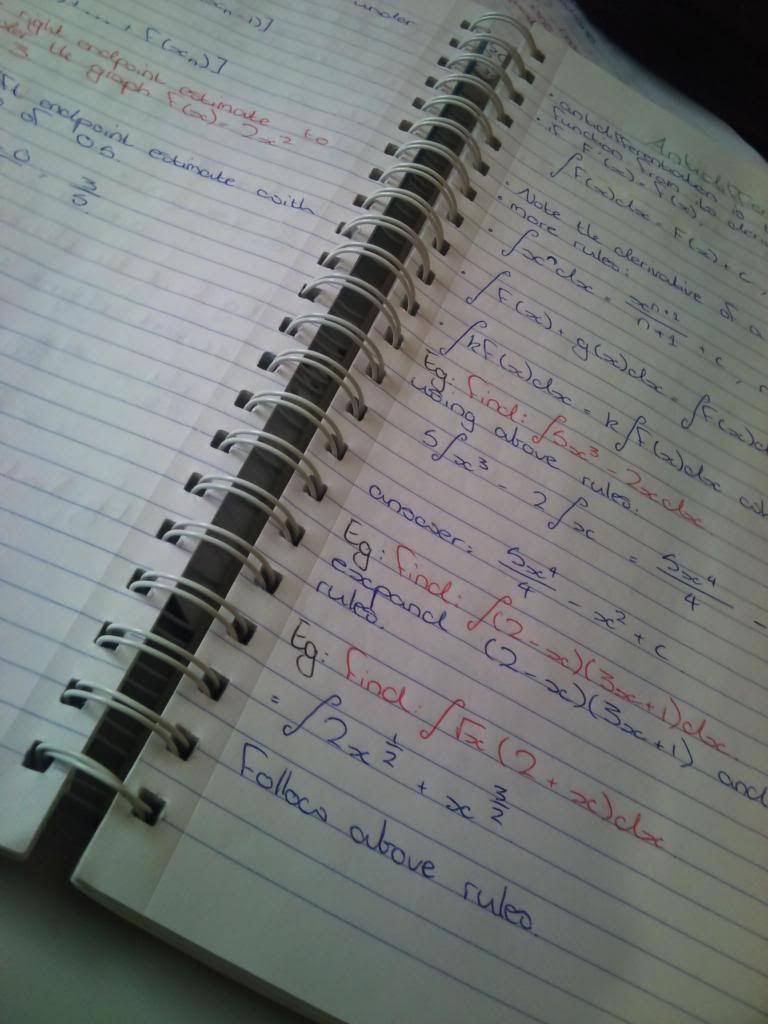 x_{n-1})]
under
, ...., + f(x_n)]
right endpoint estimate to
the graph f(x) = 2x²
endpoint estimate with
of 0.5.
Antidiffe
• antidifferentiation is
function from its deriv
• if F'(x) = f(x),
∫f(x)dx = F(x) + c,
• Note the derivative of a
• more rules:
• ∫xⁿdx = xⁿ⁺¹/n+1 + c,
• ∫f(x) + g(x)dx = ∫f(x)d
• ∫kf(x)dx = k∫f(x)dx
Eg: find: ∫5x³ - 2xdx
using above rules.
5∫x³ - 2∫x = 5x⁴/4 -
answer: 5x⁴/4 - x² + c
Eg: find: ∫(2-x)(3x+1)dx.
expand (2-x)(3x+1) and
rules.
Eg: find: ∫√x(2+x)dx
= ∫2x^{1/2} + x^{3/2}
Follow above rules.